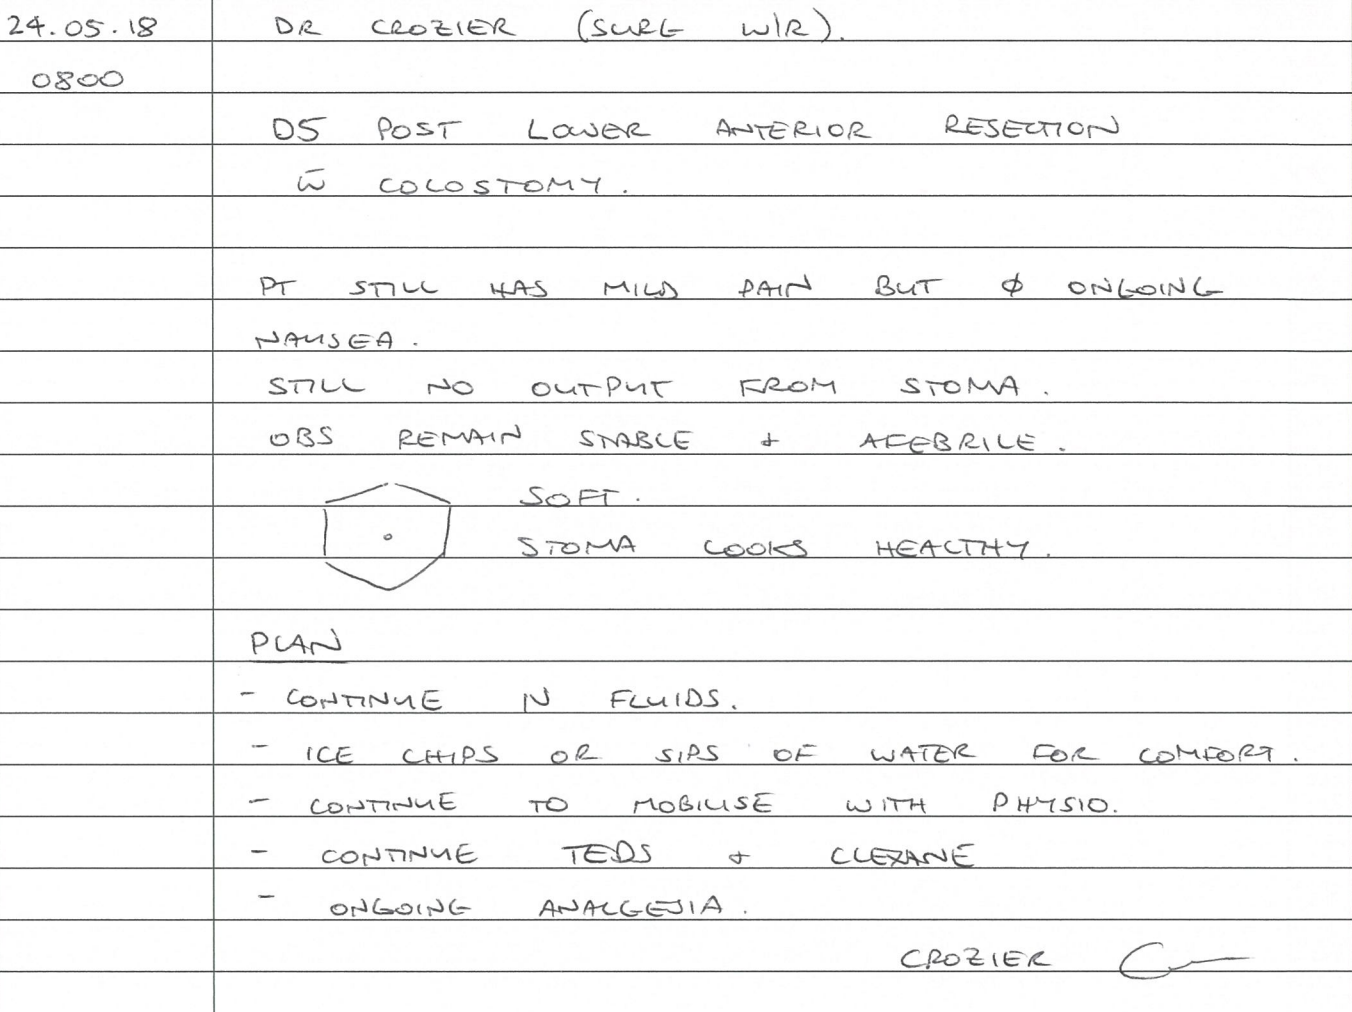 24.05.18 DR CROZIER (SURG W/R).
0800
D5 POST LOWER ANTERIOR RESECTION
w̄ COLOSTOMY.
PT STILL HAS MILD PAIN BUT ϕ ONGOING
NAUSEA.
STILL NO OUTPUT FROM STOMA.
OBS REMAIN STABLE + AFEBRILE.
SOFT.
STOMA LOOKS HEALTHY.
PLAN
- CONTINUE IV FLUIDS.
- ICE CHIPS OR SIPS OF WATER FOR COMFORT.
- CONTINUE TO MOBILISE WITH PHYSIO.
- CONTINUE TEDS + CLEXANE
- ONGOING ANALGESIA.
CROZIER